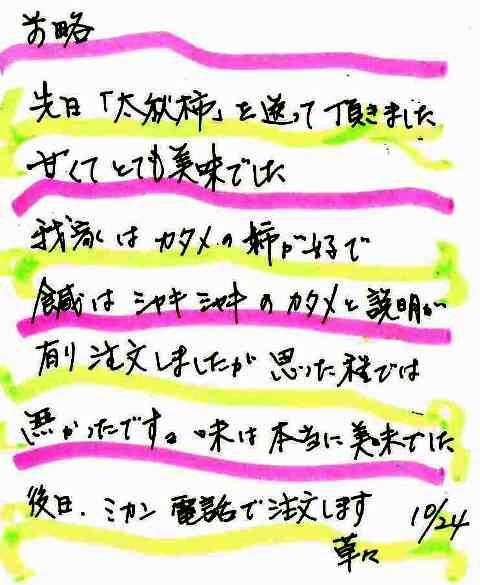 前略
先日「太秋柿」を送って頂きました
甘くてとても美味でした
我家はカタメの柿が好で
鹹はシャキシャキのカタメと説明が
有り注文しましたが思った程では
無かったです。味は本当に美味でした
後日、ミカン電話で注文します 10/24
草々